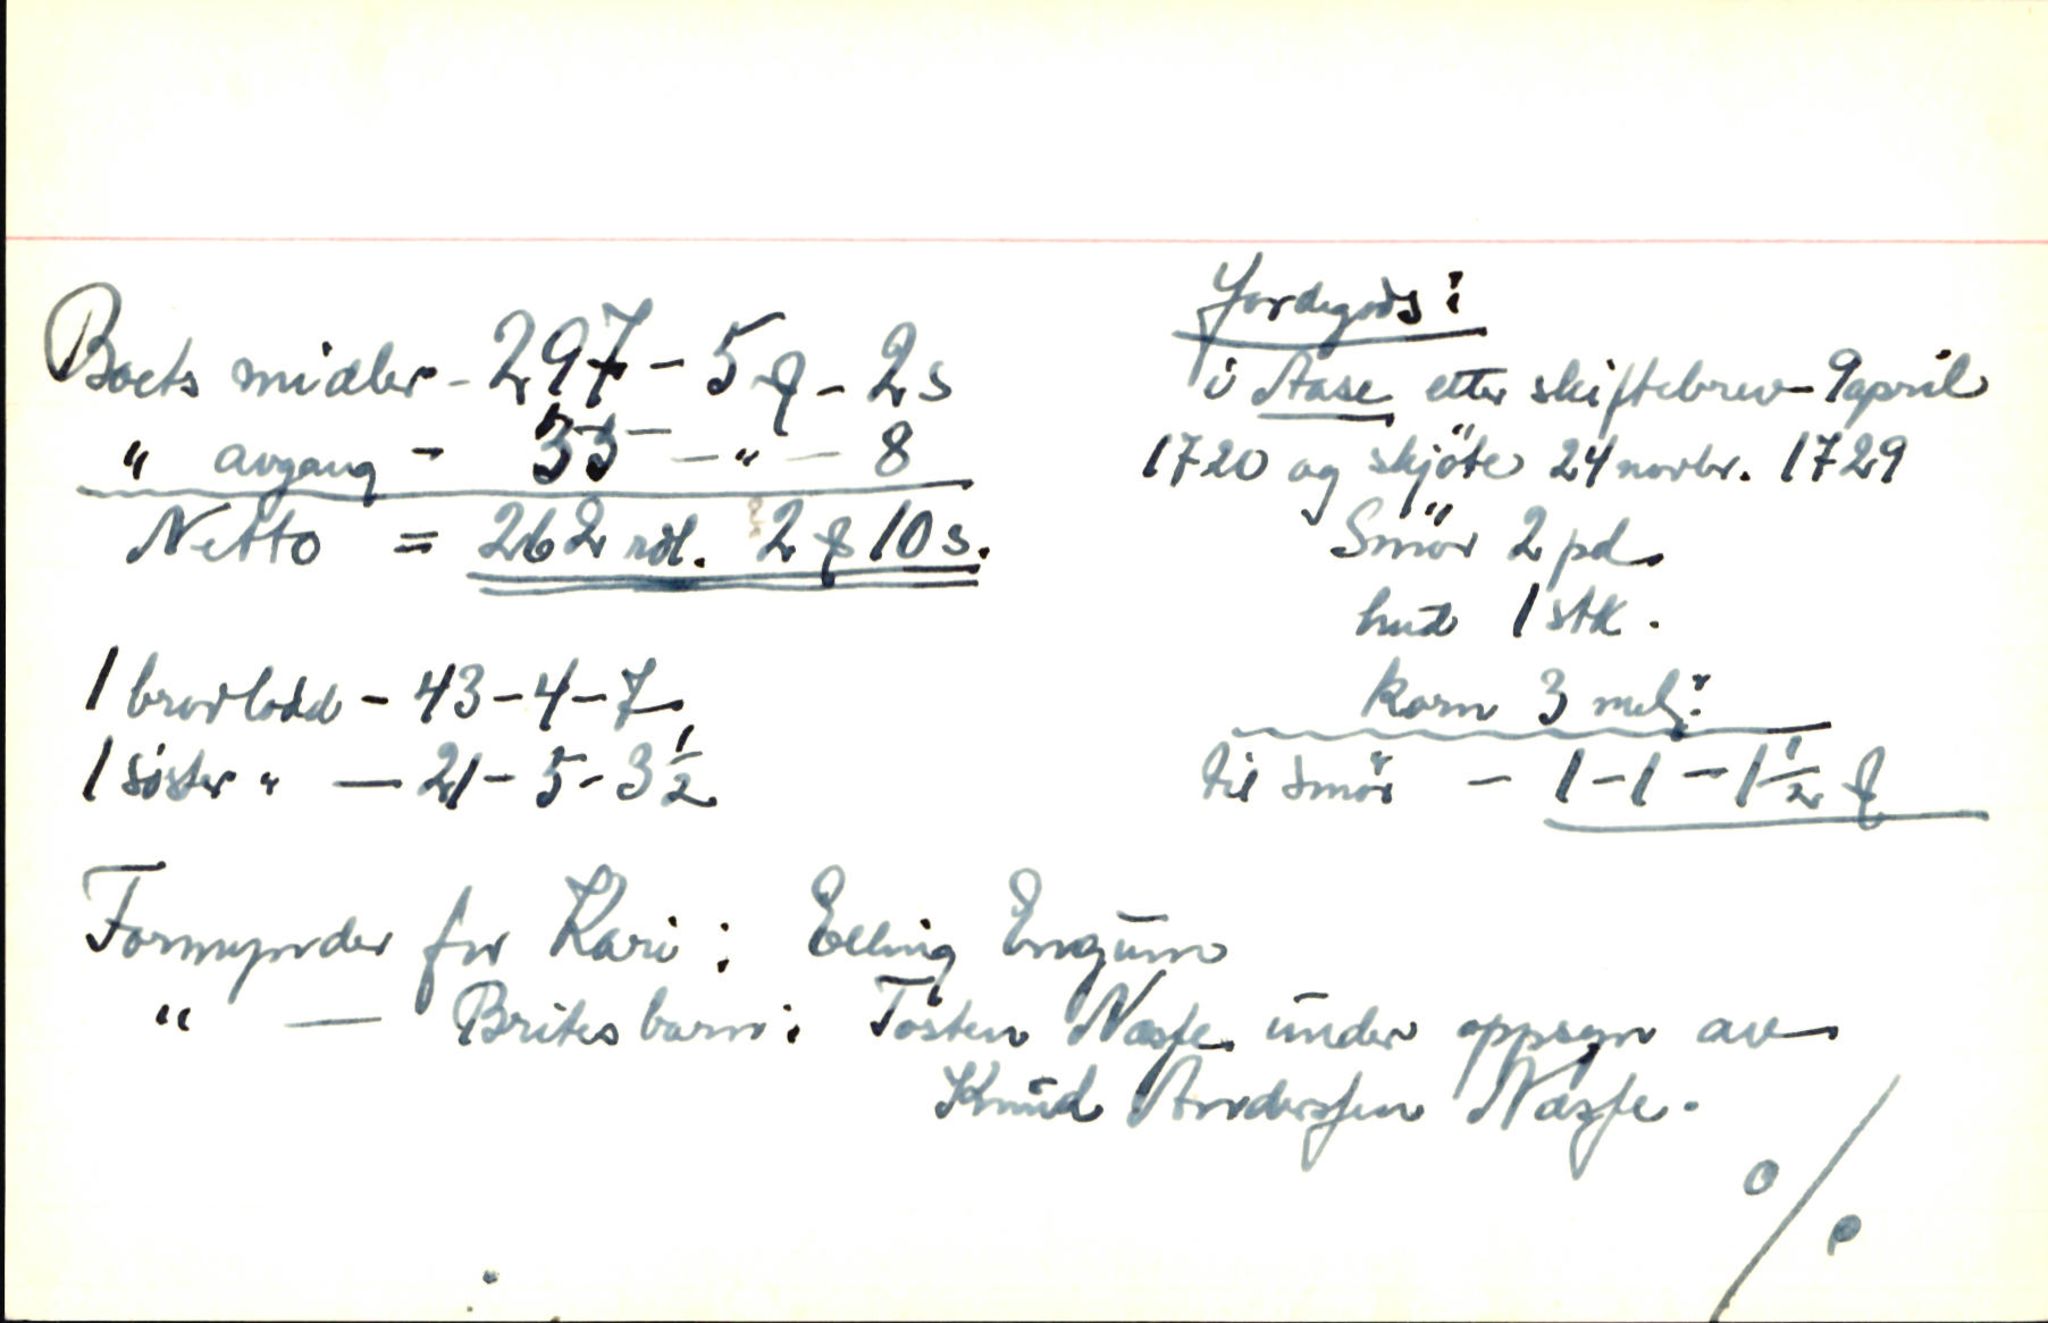 Boets midler - 297 - 5 ƒ - 2 s
" avgang - 35 - " - 8
Netto = 262 rdl. 2 ƒ 10 s.
1 brorlodd - 43 - 4 - 7
1 söster " - 21 - 5 - 3 1/2
Jordegods:
i Aase etter skiftebrev 9 april
1720 og skjöte 24 novbr. 1729
Smör 2 pd.
hud 1 stk.
korn 3 mel:
til smör - 1 - 1 - 1 1/2 ƒ
Formynder for Kari: Elling Engum
" — Brites barn: Tosten Næsse under oppsyn av
Knud Anderssen Næsse.
%